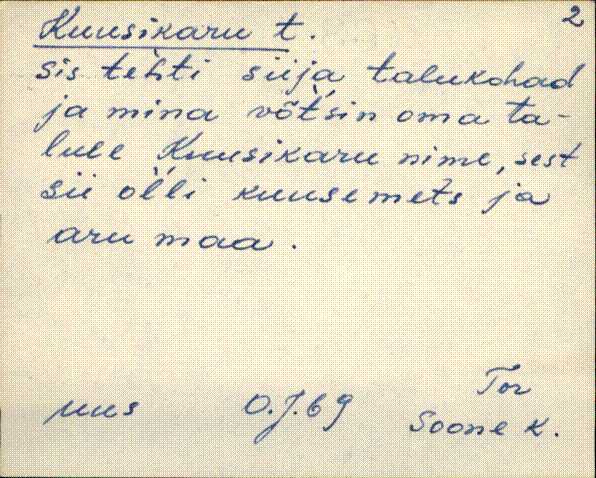 Kuusikaru t. 2
sis tehti siija talukohad
ja mina võt́sin oma ta-
lule Kuusikaru nime, sest
sii oĺli kuusemets ja
aru maa.
Tor
uus O.J.69 Soone k.